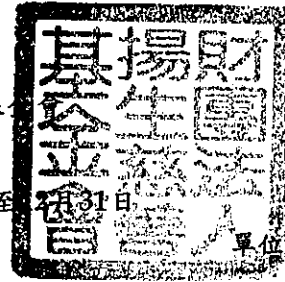 財團法人
揚生慈善
基金會
至12月31日
單位